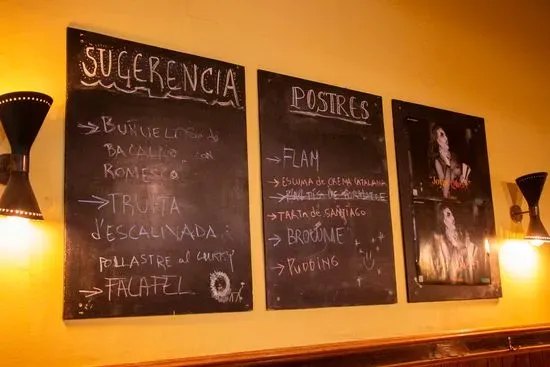 SUGERENCIA
→ BUÑUELOS de
BACALAO con
ROMESCO
→ TRUITA
d'ESCALIVADA
POLLASTRE al CURRY
→ FALAFEL
POSTRES
→ FLAM
→ ESCUMA de CREMA CATALANA
→ TARTA de SANTIAGO
→ BROWNIE
→ PUDDING